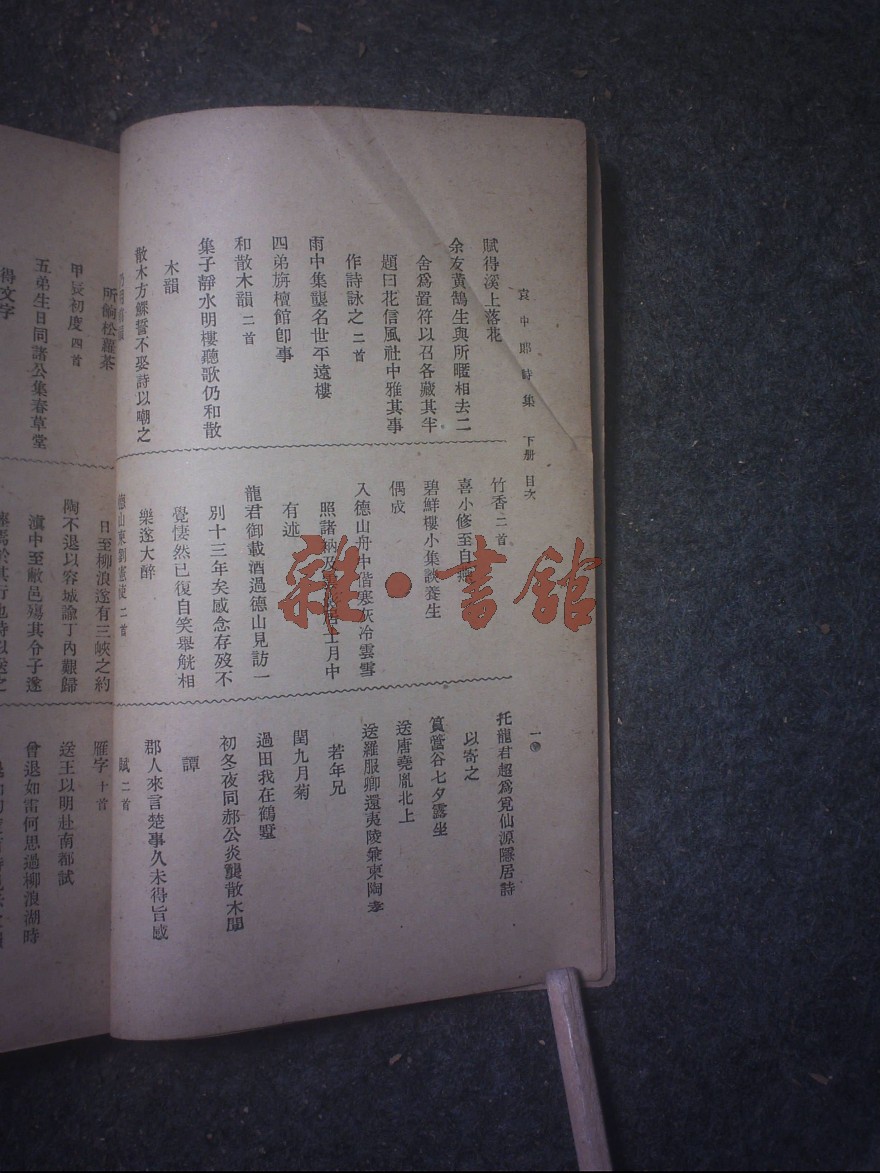 袁中郎詩集 下册 目次
一
賦得溪上落花
余友黃鵠生與所暱相去二
舍爲置符以召各藏其半
題曰花信風社中雅其事
作詩詠之 二首
雨中集龔名世平遠樓
四弟旃檀館卽事
和散木韻 二首
集子靜水明樓聽歌仍和散
木韻
散木方鰥誓不娶詩以嘲之
竹香 二首
喜小修至自燕
碧鮮樓小集談養生
偶成
入德山舟中偕寒灰冷雲雪
照諸衲及
月中
有述
龍君御載酒過德山見訪一
別十三年矣感念存歿不
覺悽然已復自笑舉觥相
樂遂大醉
德山柬劉憲使 二首
托龍君超爲覓仙源隱居詩
以寄之
篔簹谷七夕露坐
送唐堯胤北上
送羅服卿還夷陵兼柬陶孝
若年兄
閏九月菊
過田我在鶴墅
初冬夜同郝公炎龔散木閒
譚
郡人來言楚事久未得旨感
賦 二首
所餉松蘿茶
甲辰初度 四首
五弟生日同諸公集春草堂
得文字
日至柳浪遂有三峽之約
陶不退以容城諭丁內艱歸
滇中至敝邑殤其令子遂
雁字 十首
送王以明赴南都試
曾退如雷何思過柳浪湖時
雜·書館